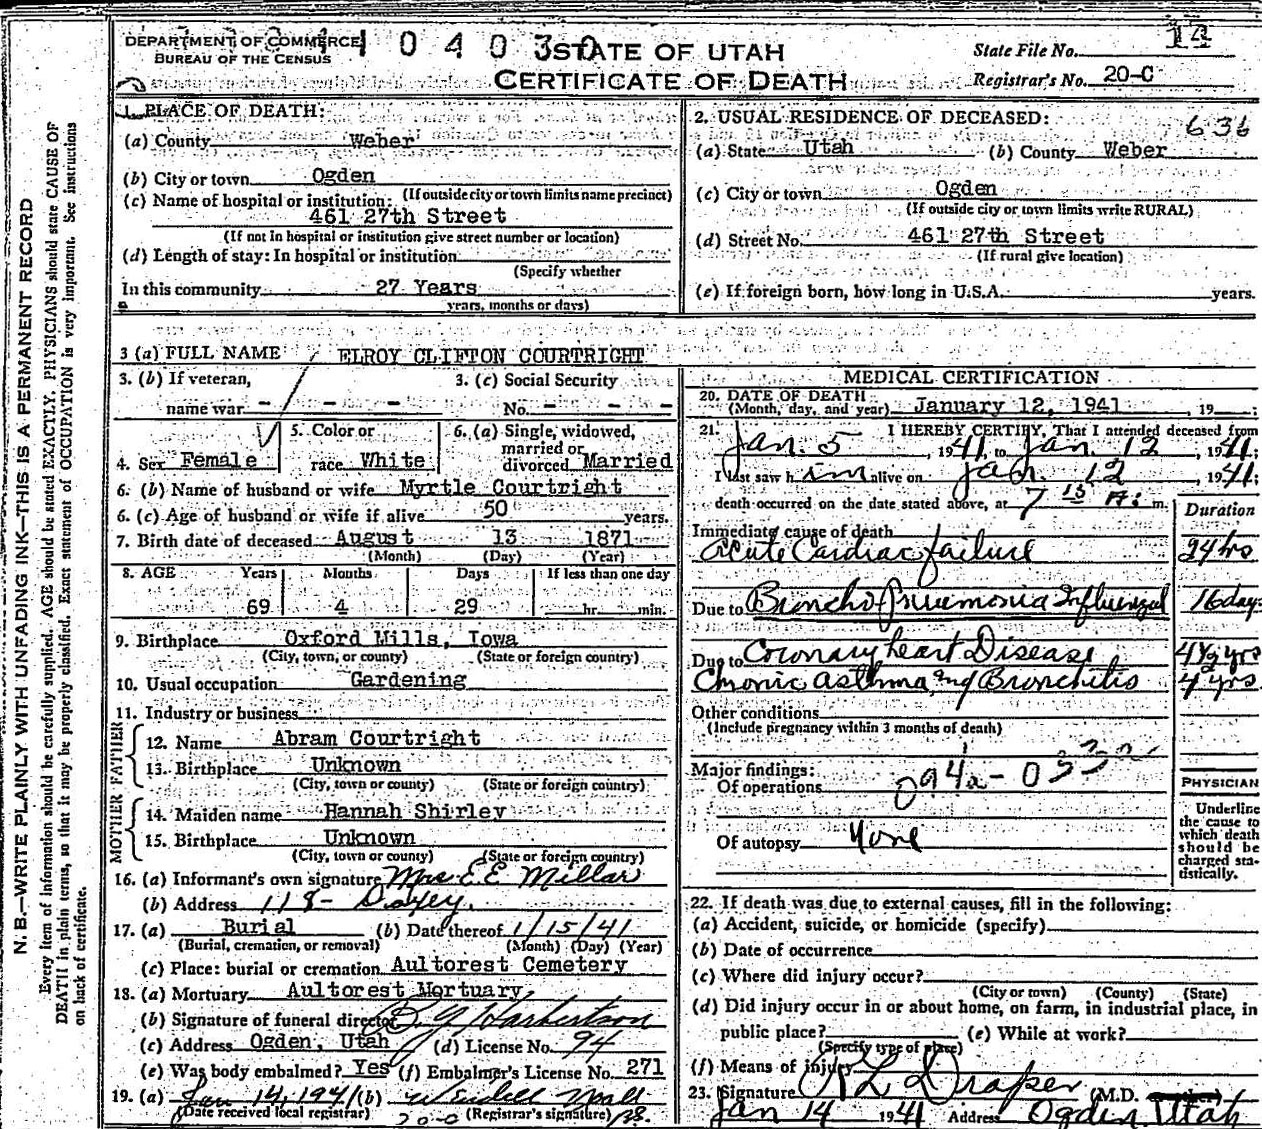 DEPARTMENT OF COMMERCE
BUREAU OF THE CENSUS
STATE OF UTAH
CERTIFICATE OF DEATH
State File No. 14
Registrar's No. 20-C
N. B.—WRITE PLAINLY WITH UNFADING INK—THIS IS A PERMANENT RECORD
Every item of information should be carefully supplied. AGE should be stated EXACTLY. PHYSICIANS should state CAUSE OF
DEATH in plain terms, so that it may be properly classified. Exact statement of OCCUPATION is very important. See instructions
on back of certificate.
1. PLACE OF DEATH:
(a) County Weber
(b) City or town Ogden
(If outside city or town limits name precinct)
(c) Name of hospital or institution:
461 27th Street
(If not in hospital or institution give street number or location)
(d) Length of stay: In hospital or institution
(Specify whether
In this community 27 Years
years, months or days)
2. USUAL RESIDENCE OF DECEASED:
636
(a) State Utah (b) County Weber
(c) City or town Ogden
(If outside city or town limits write RURAL)
(d) Street No. 461 27th Street
(If rural give location)
(e) If foreign born, how long in U.S.A. years.
3 (a) FULL NAME ELROY CLIFTON COURTRIGHT
3. (b) If veteran, 3. (c) Social Security
name war - - - No. - - -
4. Sex Female 5. Color or race White 6. (a) Single, widowed, married or divorced Married
6. (b) Name of husband or wife Myrtle Courtright
6. (c) Age of husband or wife if alive 50 years.
7. Birth date of deceased August 13 1871
(Month) (Day) (Year)
8. AGE Years Months Days If less than one day
69 4 29 hr. min.
9. Birthplace Oxford Mills, Iowa
(City, town, or county) (State or foreign country)
10. Usual occupation Gardening
11. Industry or business
FATHER
12. Name Abram Courtright
13. Birthplace Unknown
(City, town or county) (State or foreign country)
MOTHER
14. Maiden name Hannah Shirley
15. Birthplace Unknown
(City, town or county) (State or foreign country)
16. (a) Informant's own signature Mrs. E E Millar
(b) Address 118-
17. (a) Burial (b) Date thereof 1/15/41
(Burial, cremation, or removal) (Month) (Day) (Year)
(c) Place: burial or cremation Aultorest Cemetery
18. (a) Mortuary Aultorest Mortuary
(b) Signature of funeral director Harbertson
(c) Address Ogden, Utah (d) License No. 94
(e) Was body embalmed? Yes (f) Embalmer's License No. 271
19. (a) Jan 14, 1941 (b) Wendell
(Date received local registrar) (Registrar's signature)
MEDICAL CERTIFICATION
20. DATE OF DEATH
(Month, day, and year) January 12, 1941, 19 ;
21. I HEREBY CERTIFY, That I attended deceased from
Jan. 5, 1941, to Jan. 12, 1941;
I last saw him alive on Jan. 12, 1941;
death occurred on the date stated above, at 7 15 A. m.
Duration
Immediate cause of death
Acute Cardiac failure 24 hrs
Due to Broncho-Pneumonia Influenzal 16 days
Due to Coronary heart Disease 4 1/2 yrs
Chronic asthma and Bronchitis 4 yrs
Other conditions
(Include pregnancy within 3 months of death)
Major findings:
Of operations 094a-033
Of autopsy None
PHYSICIAN
Underline
the cause to
which death
should be
charged sta-
tistically.
22. If death was due to external causes, fill in the following:
(a) Accident, suicide, or homicide (specify)
(b) Date of occurrence
(c) Where did injury occur?
(City or town) (County) (State)
(d) Did injury occur in or about home, on farm, in industrial place, in
public place? (e) While at work?
(Specify type of place)
(f) Means of injury
23. Signature L Draper (M.D.
Jan 14 1941 Address Ogden, Utah